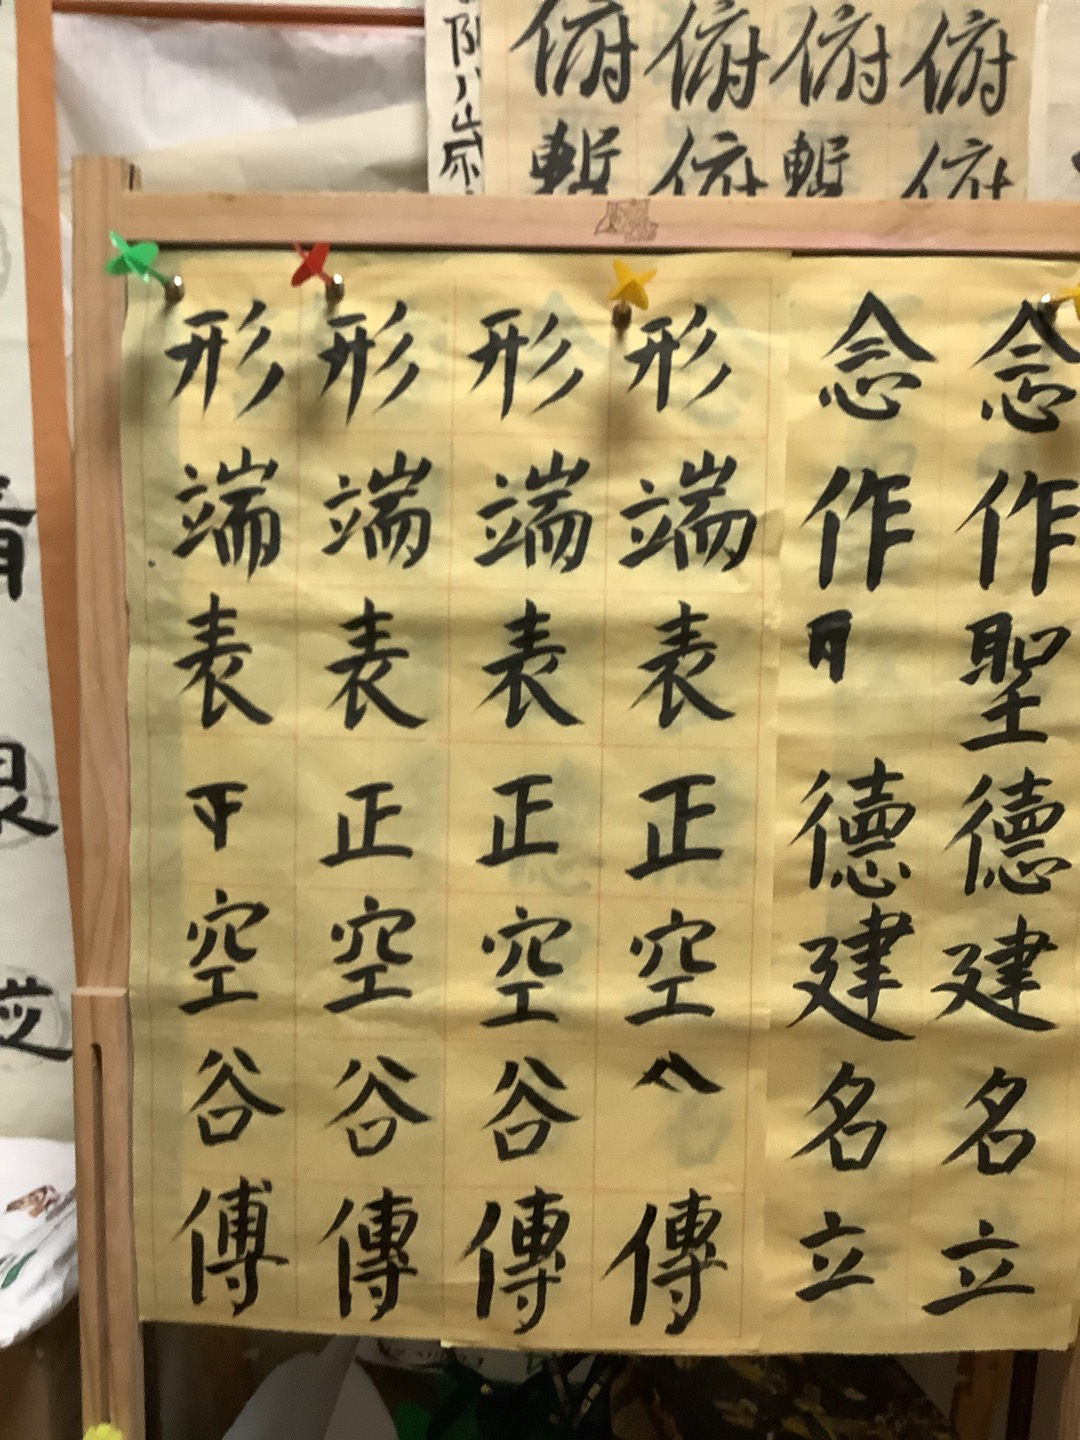 俯俯
俯
俯俯
俯
念作聖德建名立
念作德建名立
形端表正空傳
形端表正空谷傳
形端表正空谷傳
形端表空谷傅